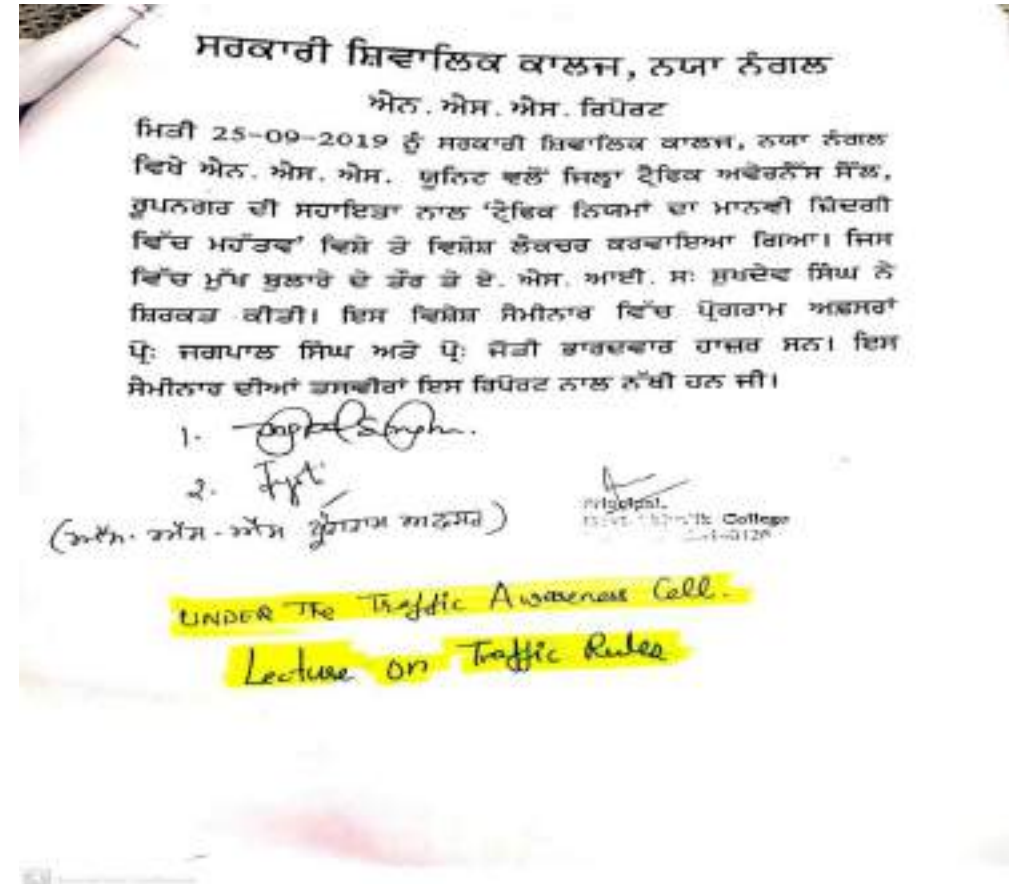 ਸਰਕਾਰੀ ਸ਼ਿਵਾਲਿਕ ਕਾਲਜ, ਨਯਾ ਨੰਗਲ
ਐਨ.ਐਸ.ਐਸ. ਰਿਪੋਰਟ
ਮਿਤੀ 25-09-2019 ਨੂੰ ਸਰਕਾਰੀ ਸ਼ਿਵਾਲਿਕ ਕਾਲਜ, ਨਯਾ ਨੰਗਲ
ਵਿਖੇ ਐਨ.ਐਸ.ਐਸ. ਯੂਨਿਟ ਵਲੋਂ ਜਿਲ੍ਹਾ ਟ੍ਰੈਫਿਕ ਅਵੇਰਨੈੱਸ ਸੈੱਲ,
ਰੂਪਨਗਰ ਦੀ ਸਹਾਇਤਾ ਨਾਲ 'ਟ੍ਰੈਫਿਕ ਨਿਯਮਾਂ ਦਾ ਮਾਨਵੀ ਜ਼ਿੰਦਗੀ
ਵਿੱਚ ਮਹੱਤਵ' ਵਿਸ਼ੇ ਤੇ ਵਿਸ਼ੇਸ਼ ਲੈਕਚਰ ਕਰਵਾਇਆ ਗਿਆ। ਜਿਸ
ਵਿੱਚ ਮੁੱਖ ਬੁਲਾਰੇ ਦੇ ਤੌਰ ਤੇ ਏ.ਐਸ.ਆਈ. ਸ: ਸੁਖਦੇਵ ਸਿੰਘ ਨੇ
ਸ਼ਿਰਕਤ ਕੀਤੀ। ਇਸ ਵਿਸ਼ੇਸ਼ ਸੈਮੀਨਾਰ ਵਿੱਚ ਪ੍ਰੋਗਰਾਮ ਅਫ਼ਸਰਾਂ
ਪ੍ਰੋ: ਜਗਪਾਲ ਸਿੰਘ ਅਤੇ ਪ੍ਰੋ: ਜੋਤੀ ਭਾਰਦਵਾਰ ਹਾਜ਼ਰ ਸਨ। ਇਸ
ਸੈਮੀਨਾਰ ਦੀਆਂ ਤਸਵੀਰਾਂ ਇਸ ਰਿਪੋਰਟ ਨਾਲ ਨੱਥੀ ਹਨ ਜੀ।
1.
2. Jyoti
(ਐਨ.ਐੱਸ.ਐੱਸ ਪ੍ਰੋਗਰਾਮ ਅਫ਼ਸਰ)
Principal.
College
UNDER The Traffic Awareness Cell.
Lecture on Traffic Rules